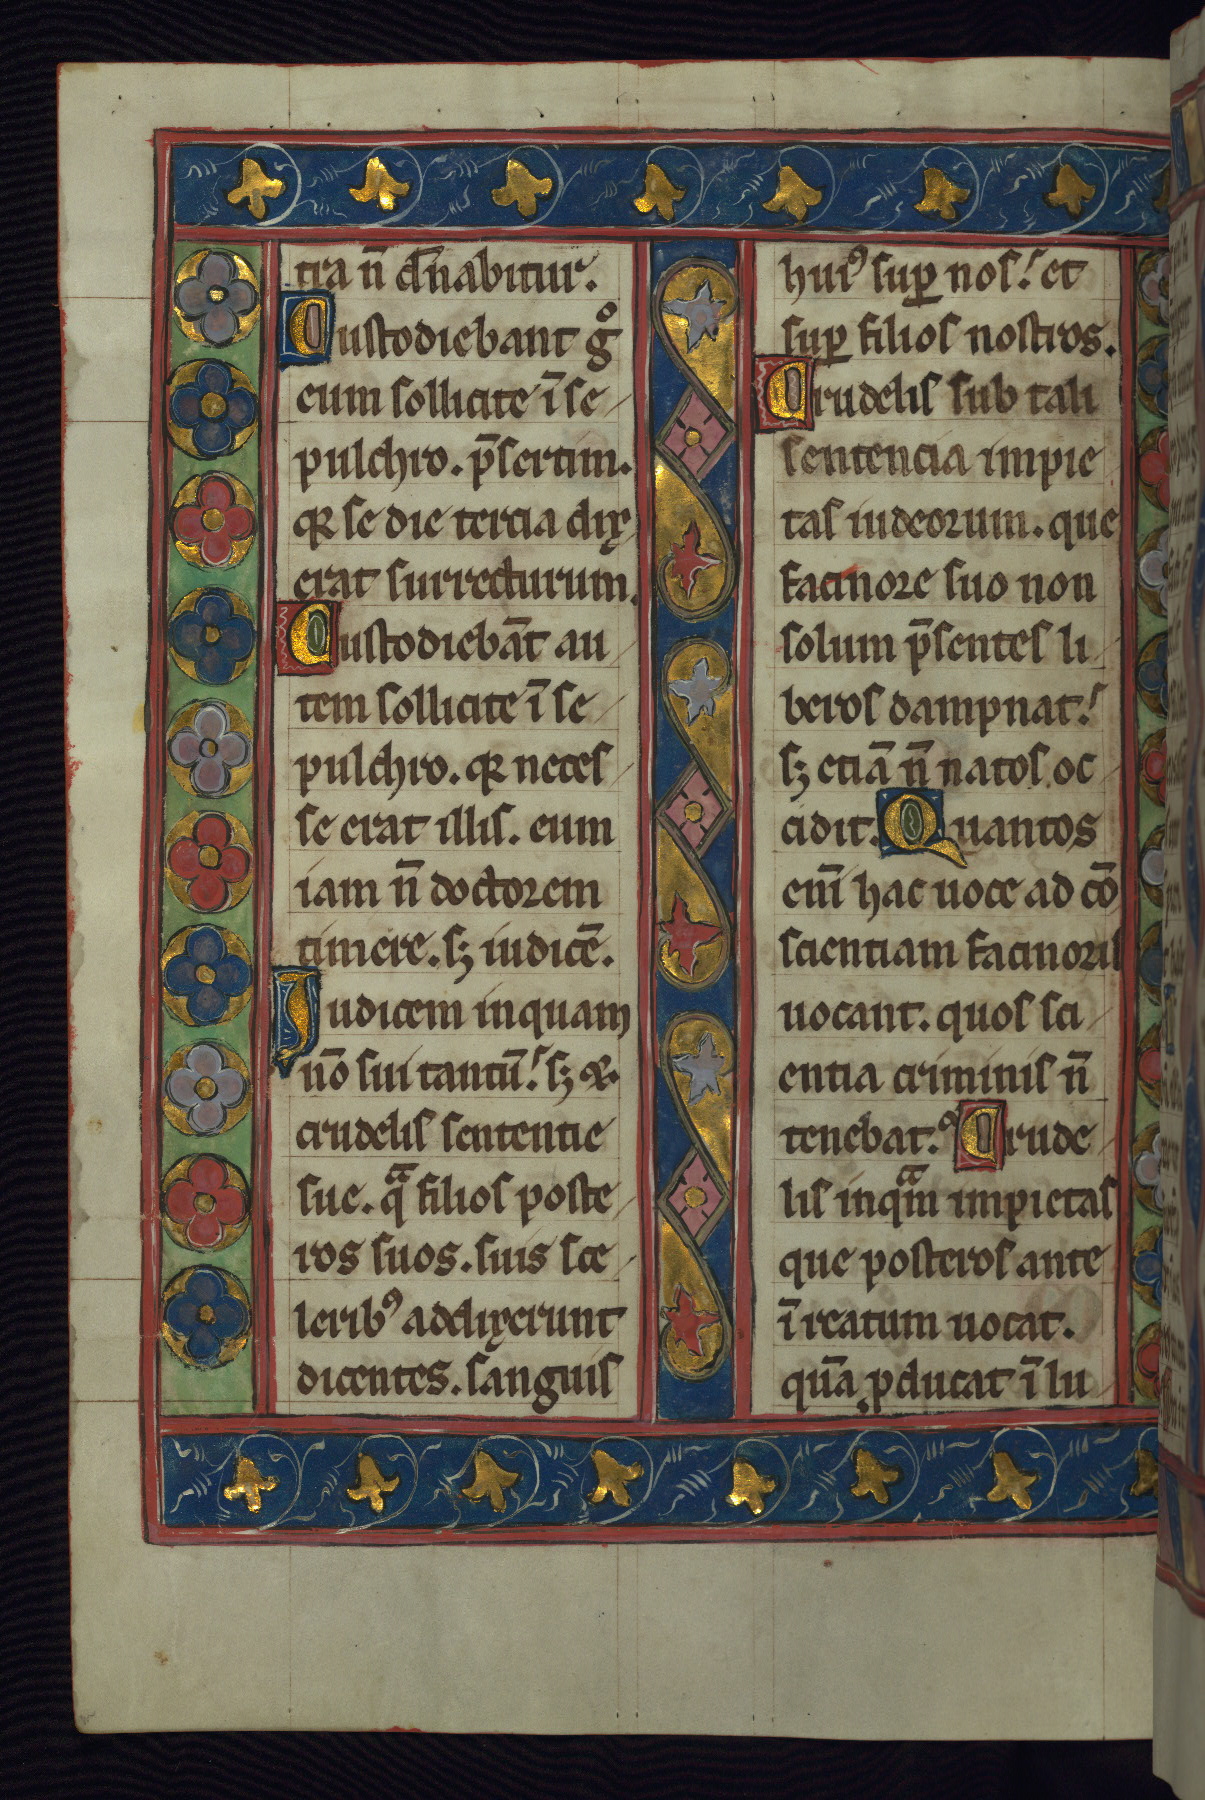 tra n̄ dn̄abitur.
Custodiebant gͦ
eum sollicite ī se
pulchro. p̄sertim.
qꝛ se die tercia dix
erat surrecturum.
Custodiebāt au
tem sollicite ī se
pulchro. qꝛ neces
se erat illis. eum
iam n̄ doctorem
timere. sꝫ iudicē.
Iudicem inquam
nō sui tantū! sꝫ ⁊
crudelis sententie
sue. qͣ filios poste
ros suos. suis sce
leribꝰ addixerunt
dicentes. sanguis
huiꝰ suꝑ nos! et
suꝑ filios nostros.
Crudelis sub tali
sentencia impie
tas iudeorum. que
facinore suo non
solum p̄sentes li
beros dampnat!
sꝫ etiā n̄ natos oc
cidit. Quantos
enī hac uoce ad cō
scientiam facinoris
uocant. quos sci
entia criminis n̄
tenebat. Crude
lis inqͣm impietas
que posteros ante
ī reatum uocat.
quā ꝓducat ī lu